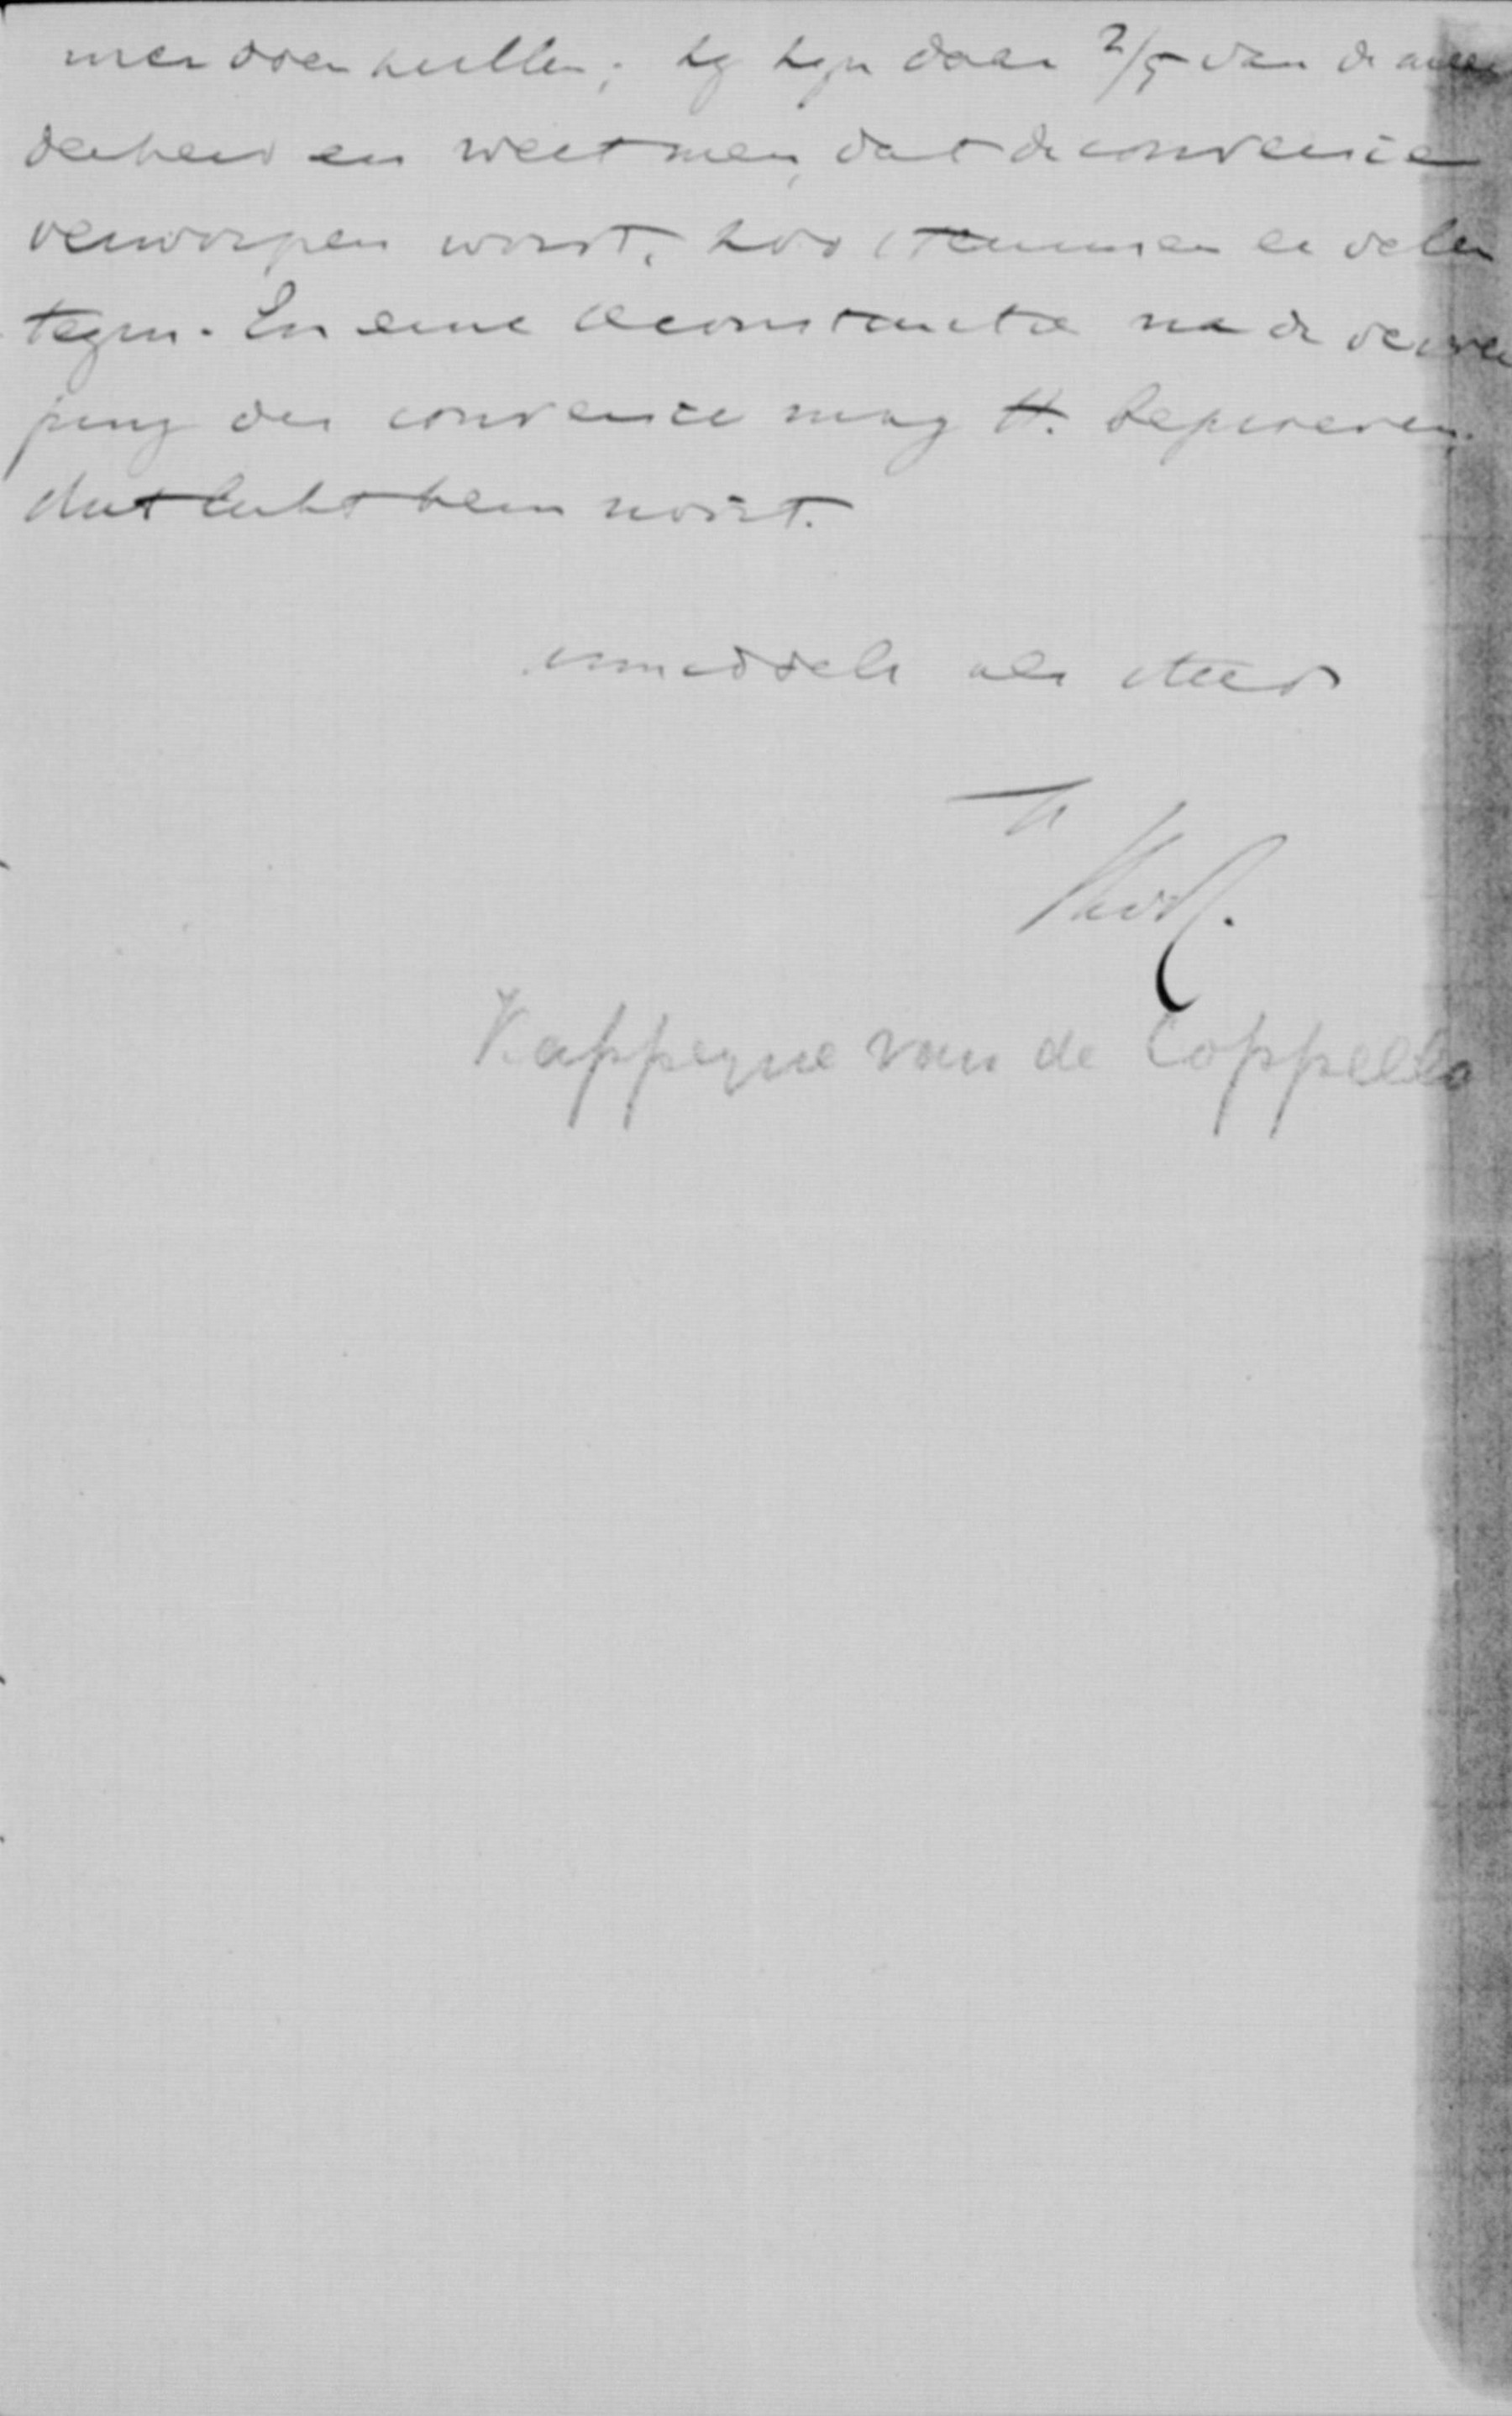 men doen zullen; zy zyn daar 2/5 van de meer
derheid en weet men, dat de conventie
verworpen wordt, zoo stemmen er velen
tegen. En eene reconstructie na de verwer
ping der conventie mag H. beproeven,
dat lukt hem nooit.
inmiddels als steeds
tt
Kappeyne van de Coppello